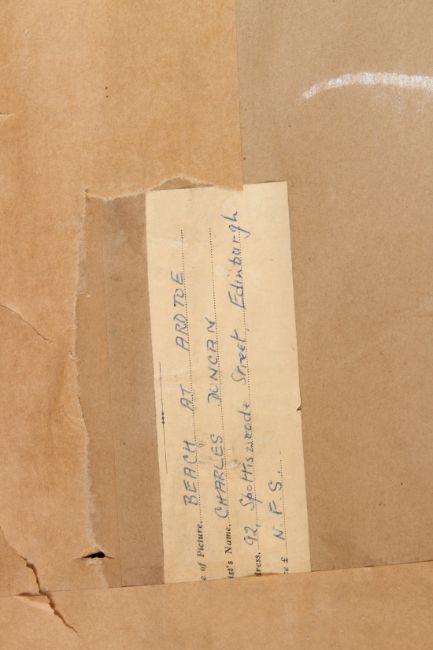 e of Picture. BEACH AT ARDTOE
ist's Name. CHARLES DUNCAN
dress. 92, Spottiswoode Street, Edinburgh
ce £ N.F.S.